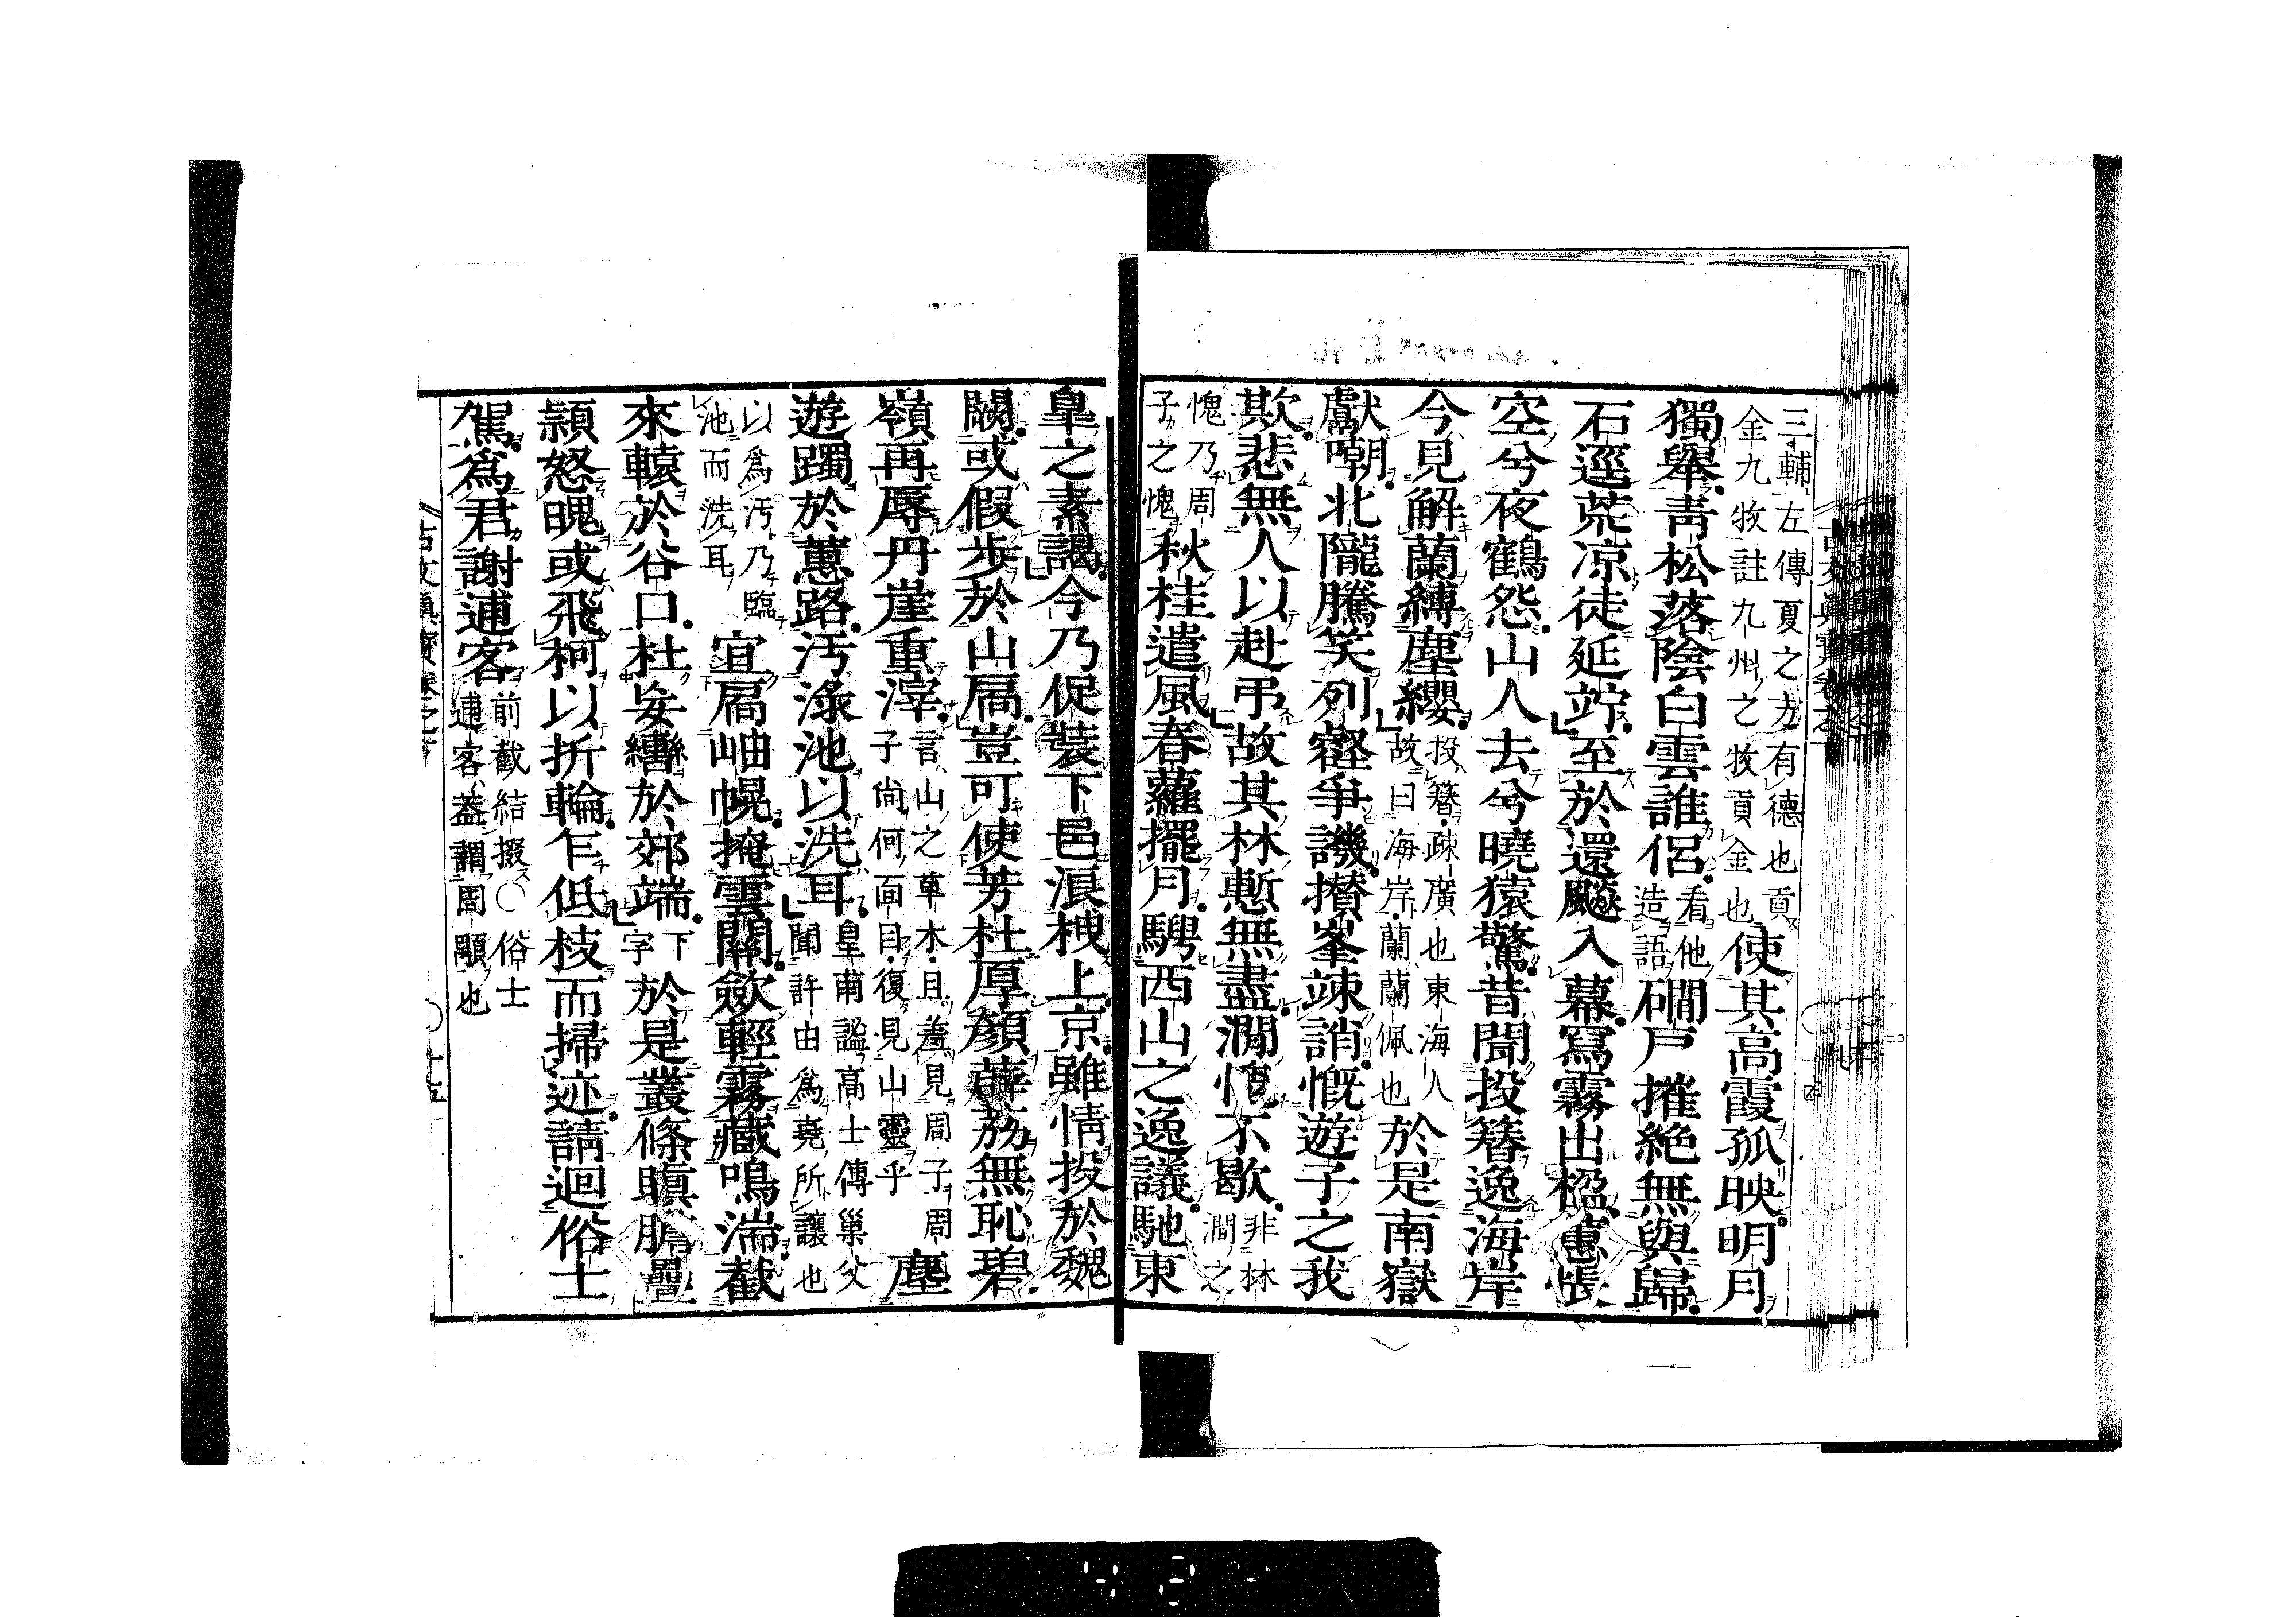 三輔左傳夏之方有德也貢
金九牧註九州之牧貢金也
使其高霞孤映明月
獨舉青松落陰白雲誰侶
看他
造語
磵戸摧絶無與歸
石逕荒凉徒延竚至於還飈入幕寫霧出楹蕙悵
空兮夜鶴怨山人去兮曉猿驚昔聞投簪逸海岸
今見解蘭縛塵纓
投簪疎廣也東海人
故曰海岸蘭蘭佩也
於是南嶽
獻嘲北隴騰笑列壑爭譏攅峯竦誚慨遊子之我
欺悲無人以赴弔故其林慙無盡澗愧不歇
非林
澗之
愧乃周
子之愧
秋桂遣風春蘿擺月騁西山之逸議馳東
皐之素謁今乃促裝下邑浪栧上京雖情投於魏
闕或假歩於山扃豈可使芳杜厚顔薜荔無恥碧
嶺再辱丹崖重滓
言山之草木且羞見周子周
子尚何面目復見山靈乎
塵
遊躅於蕙路汚淥池以洗耳
皇甫謐高士傳巢父
聞許由爲堯所讓也
以爲汚乃臨
池而洗耳
宜扃岫幌掩雲關斂輕霧藏鳴湍截
來轅於谷口杜妄轡於郊端
下
字
於是叢條瞋膽疊
潁怒魄或飛柯以折輪乍低枝而掃迹請迴俗士
駕爲君謝逋客
前截結掇〇俗士
逋客盖謂周顒也
古文眞寳卷之
十五